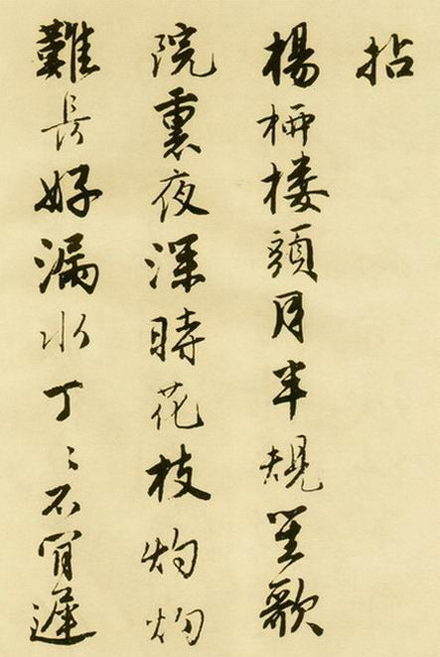 拈
楊桺楼頭月半規笙歌
院裏夜深時花枝灼灼
難長好漏水丁〻不肯遲